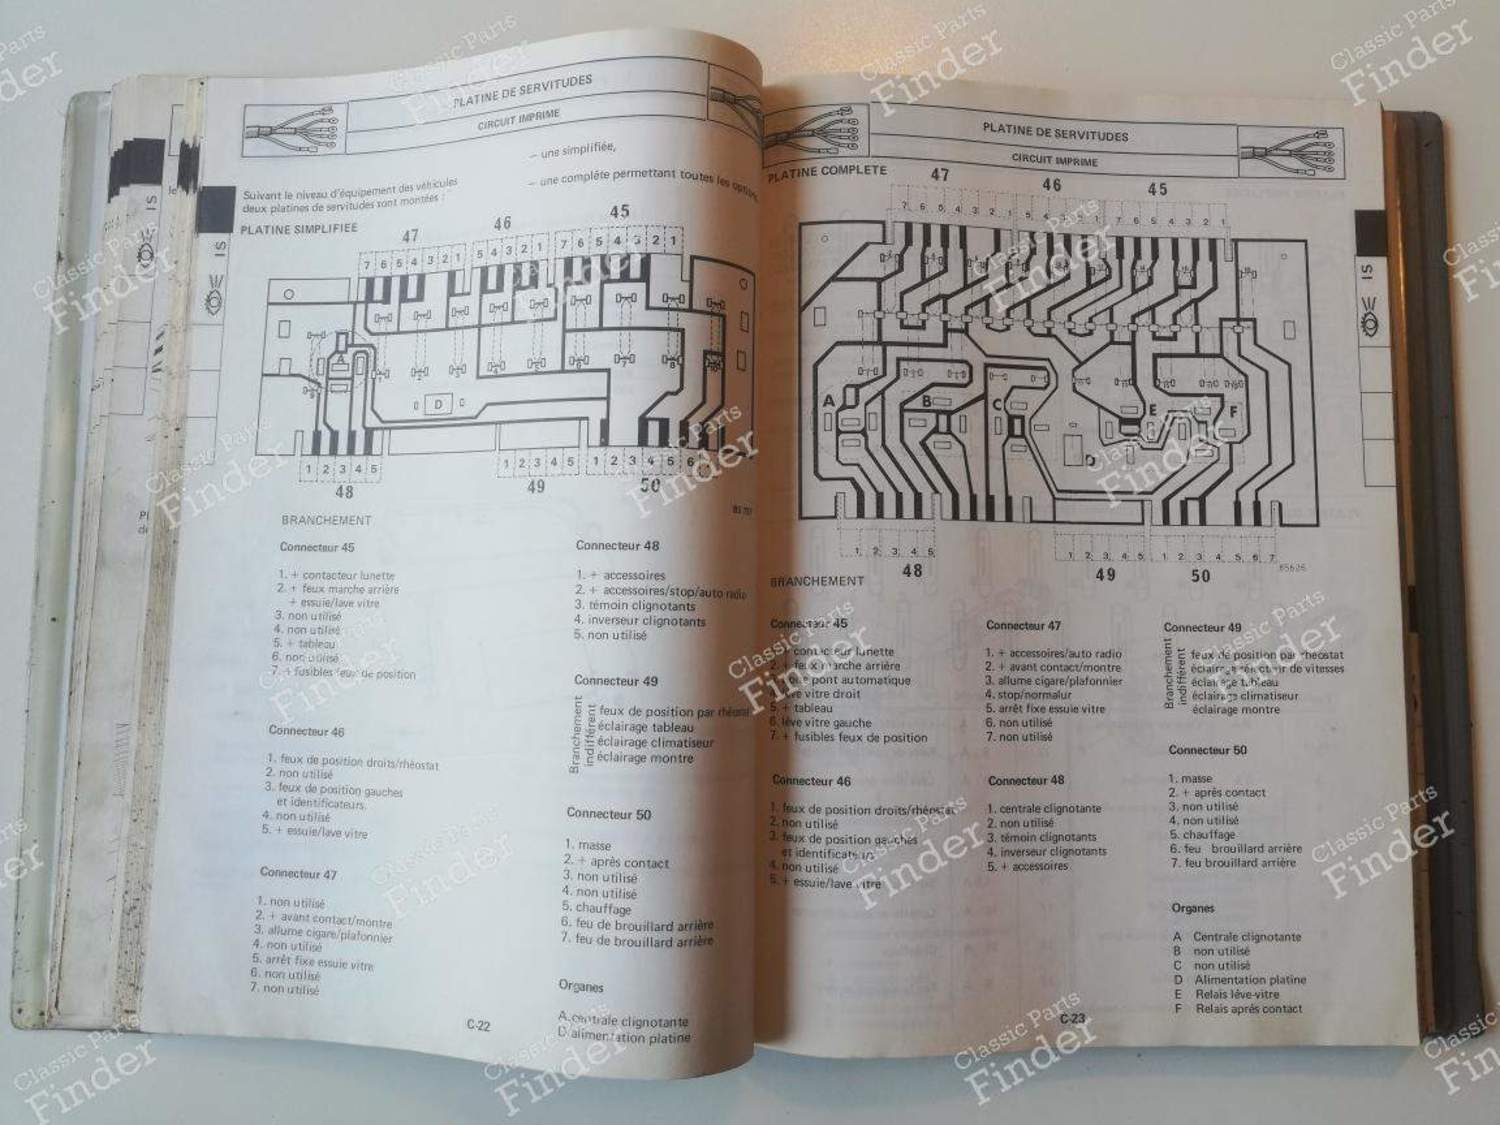 PLATINE DE SERVITUDES
CIRCUIT IMPRIME
— une simplifiée,
— une complète permettant toutes les options
Suivant le niveau d'équipement des véhicules
deux platines de servitudes sont montées :
PLATINE SIMPLIFIEE
47 46 45
7 6 5 4 3 2 1 5 4 3 2 1 7 6 5 4 3 2 1
A
D
1 2 3 4 5 1 2 3 4 5 1 2 3 4 5 6
48 49 50
BRANCHEMENT
Connecteur 45
1. + contacteur lunette
2. + feux marche arrière
+ essuie/lave vitre
3. non utilisé
4. non utilisé
5. + tableau
6. non utilisé
7. + fusibles feux de position
Connecteur 46
1. feux de position droits/rhéostat
2. non utilisé
3. feux de position gauches
et identificateurs.
4. non utilisé
5. + essuie/lave vitre
Connecteur 47
1. non utilisé
2. + avant contact/montre
3. allume cigare/plafonnier
4. non utilisé
5. arrêt fixe essuie vitre
6. non utilisé
7. non utilisé
Connecteur 48
1. + accessoires
2. + accessoires/stop/auto radio
3. témoin clignotants
4. inverseur clignotants
5. non utilisé
Connecteur 49
Branchement
indifférent
feux de position par rhéostat
éclairage tableau
éclairage climatiseur
éclairage montre
Connecteur 50
1. masse
2. + après contact
3. non utilisé
4. non utilisé
5. chauffage
6. feu de brouillard arrière
7. feu de brouillard arrière
Organes
A. centrale clignotante
D. alimentation platine
C-22
IS
IS
PLATINE DE SERVITUDES
CIRCUIT IMPRIME
PLATINE COMPLETE
47 46 45
7 6 5 4 3 2 1 5 4 1 7 6 5 4 3 2 1
A B C D E F
1 2 3 4 5 1 2 3 4 5 1 2 3 4 5 6 7
48 49 50
85626
BRANCHEMENT
Connecteur 45
+ contacteur lunette
2. + feux marche arrière
pont automatique
vitre droit
5. + tableau
6. lève vitre gauche
7. + fusibles feux de position
Connecteur 46
1. feux de position droits/rhéostat
2. non utilisé
3. feux de position gauches
et identificateurs
4. non utilisé
5. + essuie/lave vitre
Connecteur 47
1. + accessoires/auto radio
2. + avant contact/montre
3. allume cigare/plafonnier
4. stop/normalur
5. arrêt fixe essuie vitre
6. non utilisé
7. non utilisé
Connecteur 48
1. centrale clignotante
2. non utilisé
3. témoin clignotants
4. inverseur clignotants
5. + accessoires
Connecteur 49
Branchement
indifférent
feux de position par rhéostat
éclairage sélecteur de vitesses
éclairage tableau
éclairage climatiseur
éclairage montre
Connecteur 50
1. masse
2. + après contact
3. non utilisé
4. non utilisé
5. chauffage
6. feu brouillard arrière
7. feu brouillard arrière
Organes
A Centrale clignotante
B non utilisé
C non utilisé
D Alimentation platine
E Relais lève-vitre
F Relais après contact
C-23
IS
Classic Parts
Finder